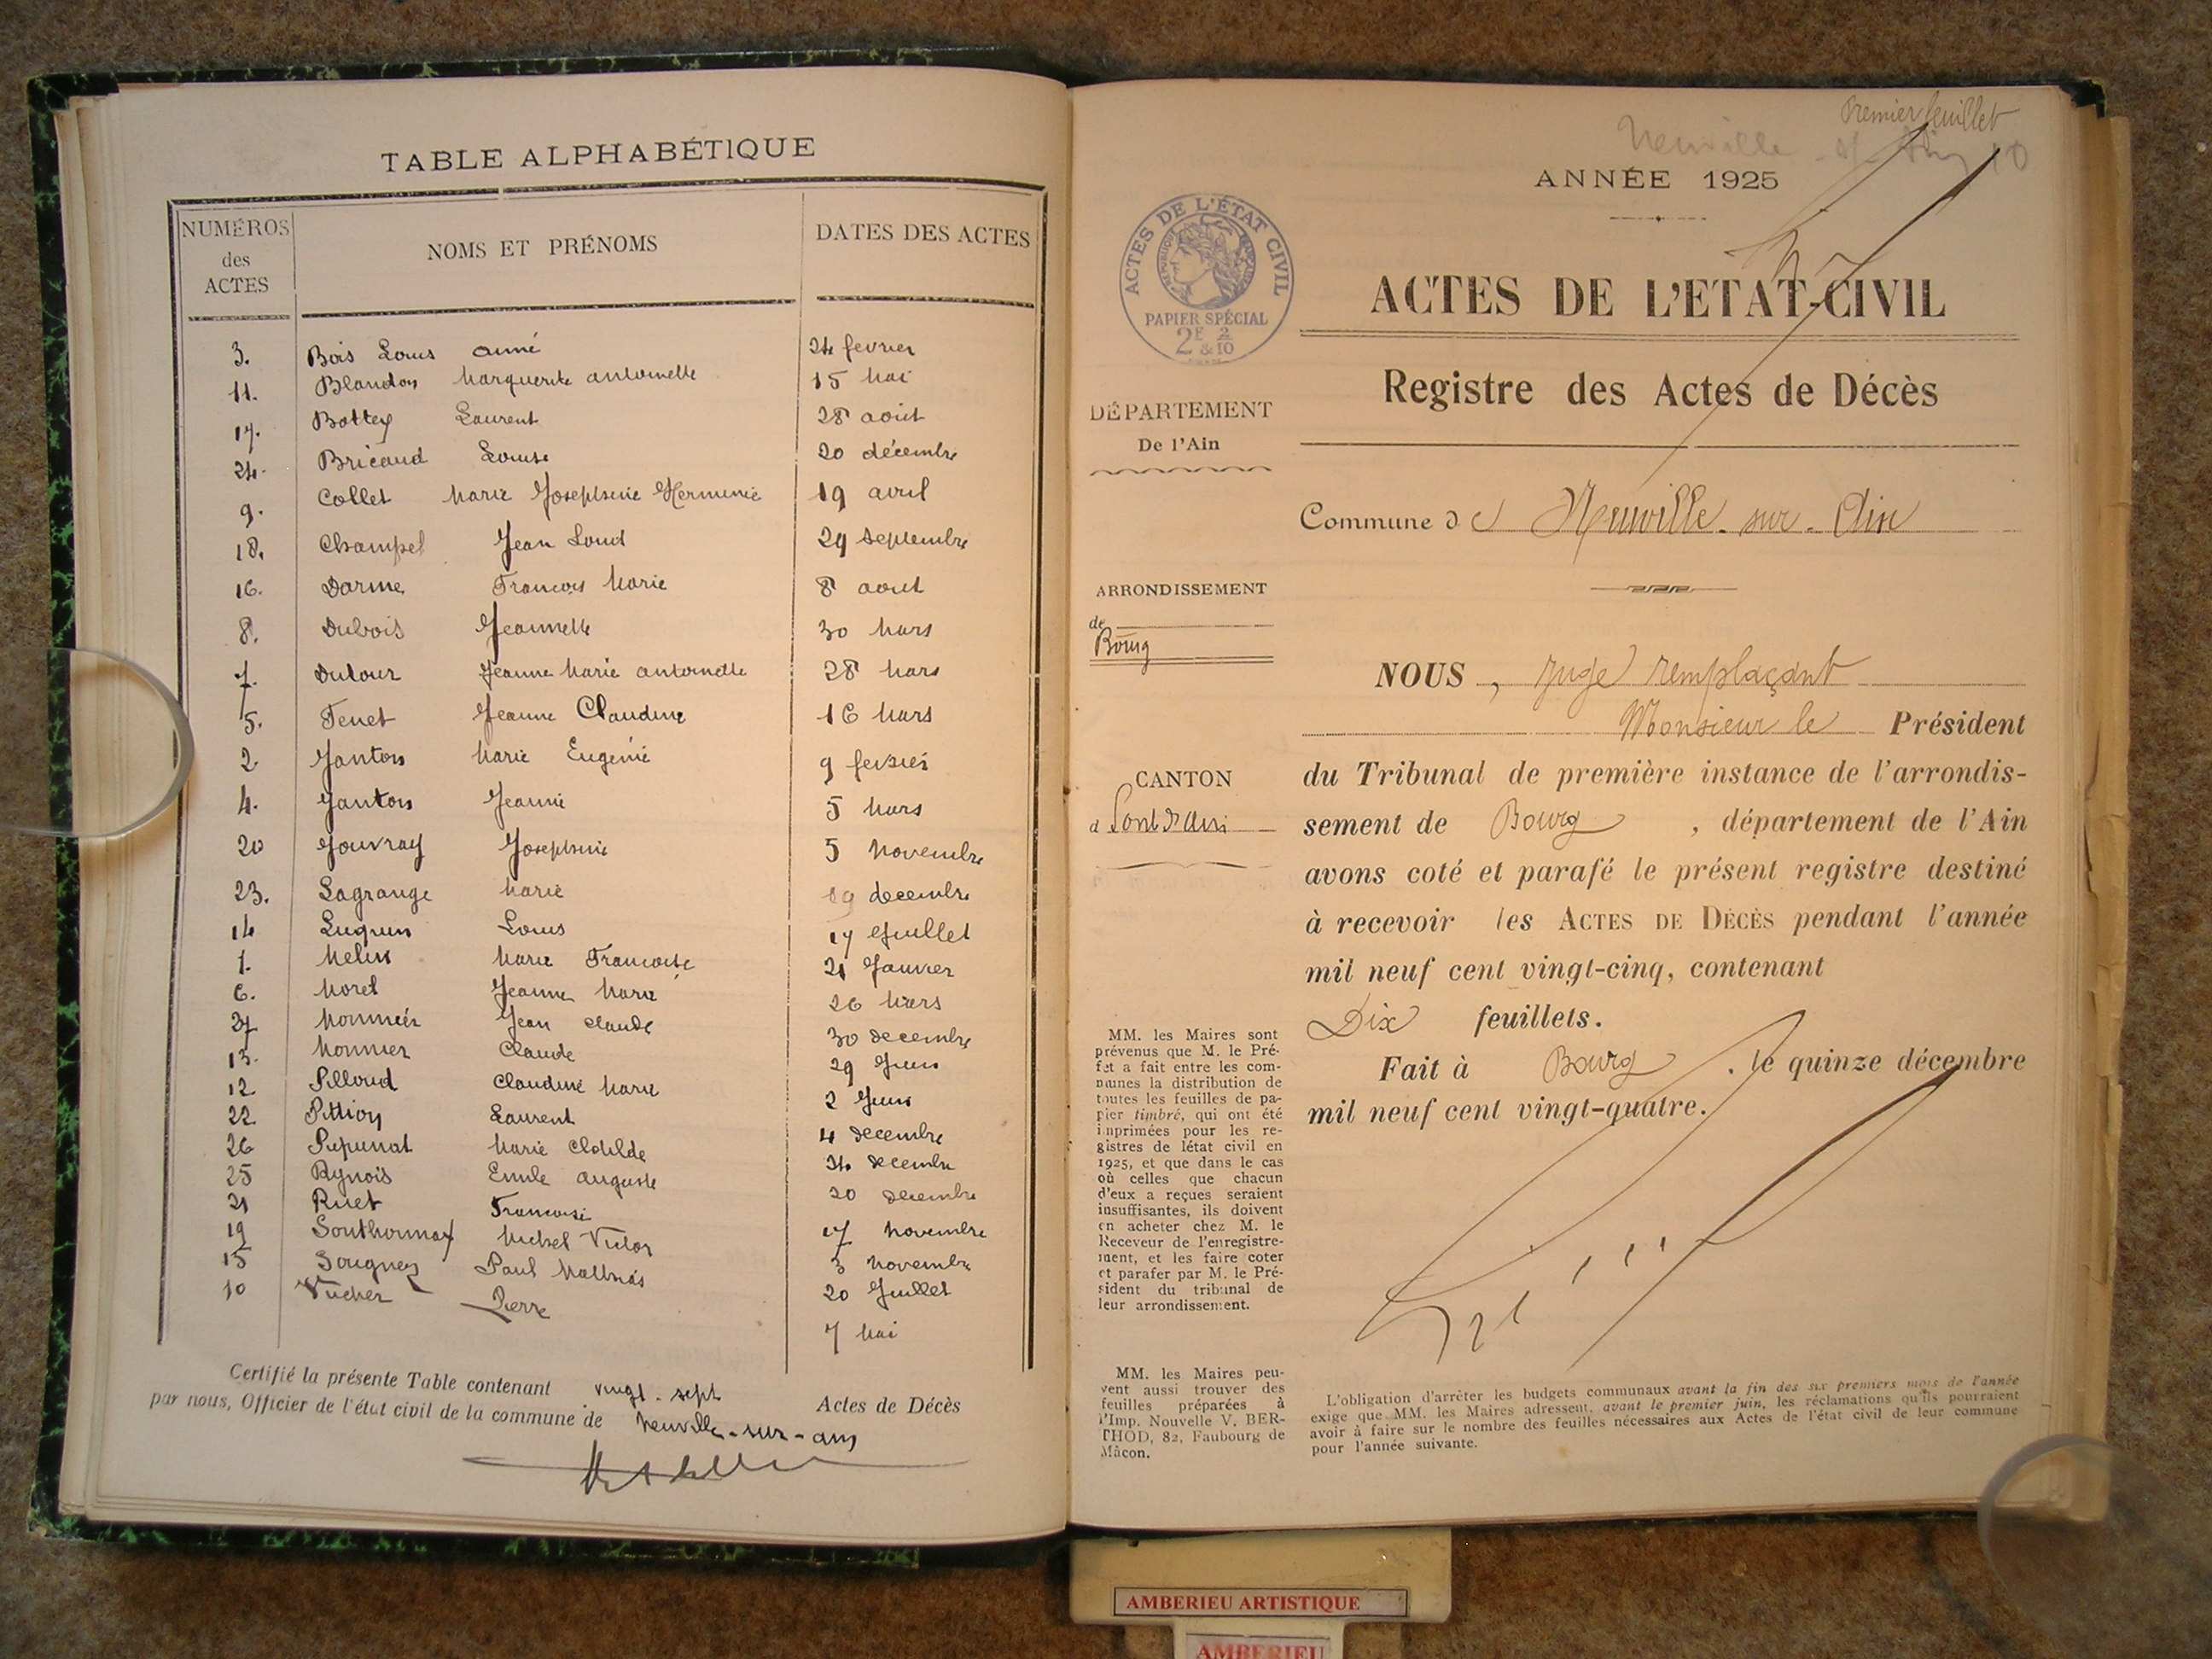 TABLE ALPHABÉTIQUE
NUMÉROS des ACTES
NOMS ET PRÉNOMS
DATES DES ACTES
3. Bois Louis Aimé 24 fevrier
11. Blandon Marguerite Antoinette 15 Mai
17. Bottex Laurent 28 août
24. Bricaud Louise 20 décembre
9. Collet Marie Josephine Herminie 19 avril
18. Champel Jean Louis 29 septembre
16. Darme François Marie 8 aout
8. Dubois Jeannette 30 Mars
7. Dutour Jeanne Marie Antoinette 28 Mars
5. Tenet Jeanne Claudine 16 Mars
2. Janton Marie Eugénie 9 fevrier
4. Janton Jeanne 5 Mars
20 Jouvray Josephine 5 Novembre
23. Lagrange Marie 19 decembre
14 Luquin Louis 17 Juillet
1. Melin Marie Francoise 21 Janvier
6. Morel Jeanne Marie 26 Mars
27 Monnier Jean Claude 30 decembre
13. Monnier Claude 29 Juin
12 Pilloud Claudine Marie 2 Juin
22 Pittion Laurent 4 decembre
26 Marie Clotilde 24 decembre
25 Emile Auguste 20 decembre
21 Ruet Francoise 17 Novembre
19 Southonnax Michel Victor 3 Novembre
15 Paul Mathias 20 Juillet
10 Vucher Pierre 7 Mai
Certifié la présente Table contenant vingt-sept Actes de Décès
par nous, Officier de l'état civil de la commune de Neuville-sur-Ain
Premier feuillet
Neuville s/ Ain 10
ANNÉE 1925
ACTES DE L'ÉTAT CIVIL
RÉPUBLIQUE FRANÇAISE
PAPIER SPÉCIAL
2F & 2/10
ACTES DE L'ETAT-CIVIL
Registre des Actes de Décès
DÉPARTEMENT
De l'Ain
Commune de Neuville-sur-Ain
ARRONDISSEMENT
de
Bourg
CANTON
d Pont d'Ain
NOUS, Juge remplaçant
Monsieur le Président
du Tribunal de première instance de l'arrondis-
sement de Bourg, département de l'Ain
avons coté et parafé le présent registre destiné
à recevoir les ACTES DE DÉCÈS pendant l'année
mil neuf cent vingt-cinq, contenant
Dix feuillets.
Fait à Bourg, le quinze décembre
mil neuf cent vingt-quatre.
MM. les Maires sont
prévenus que M. le Pré-
fet a fait entre les com-
munes la distribution de
toutes les feuilles de pa-
pier timbré, qui ont été
imprimées pour les re-
gistres de létat civil en
1925, et que dans le cas
où celles que chacun
d'eux a reçues seraient
insuffisantes, ils doivent
en acheter chez M. le
Receveur de l'enregistre-
ment, et les faire coter
et parafer par M. le Pré-
sident du tribunal de
leur arrondissement.
MM. les Maires peu-
vent aussi trouver des
feuilles préparées à
l'Imp. Nouvelle V. BER-
THOD, 82, Faubourg de
Mâcon.
L'obligation d'arrêter les budgets communaux avant la fin des six premiers mois de l'année
exige que MM. les Maires adressent, avant le premier juin, les réclamations qu'ils pourraient
avoir à faire sur le nombre des feuilles nécessaires aux Actes de l'état civil de leur commune
pour l'année suivante.
AMBERIEU ARTISTIQUE
AMBERIEU